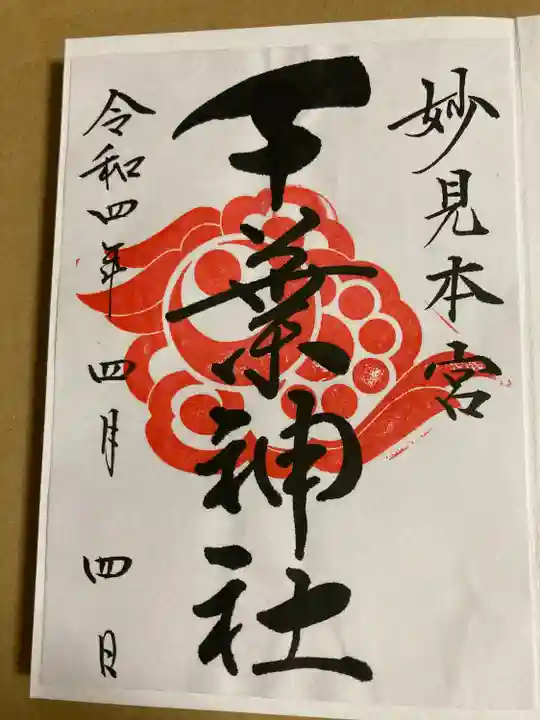 妙見本宮
千葉神社
令和四年 四月 四日